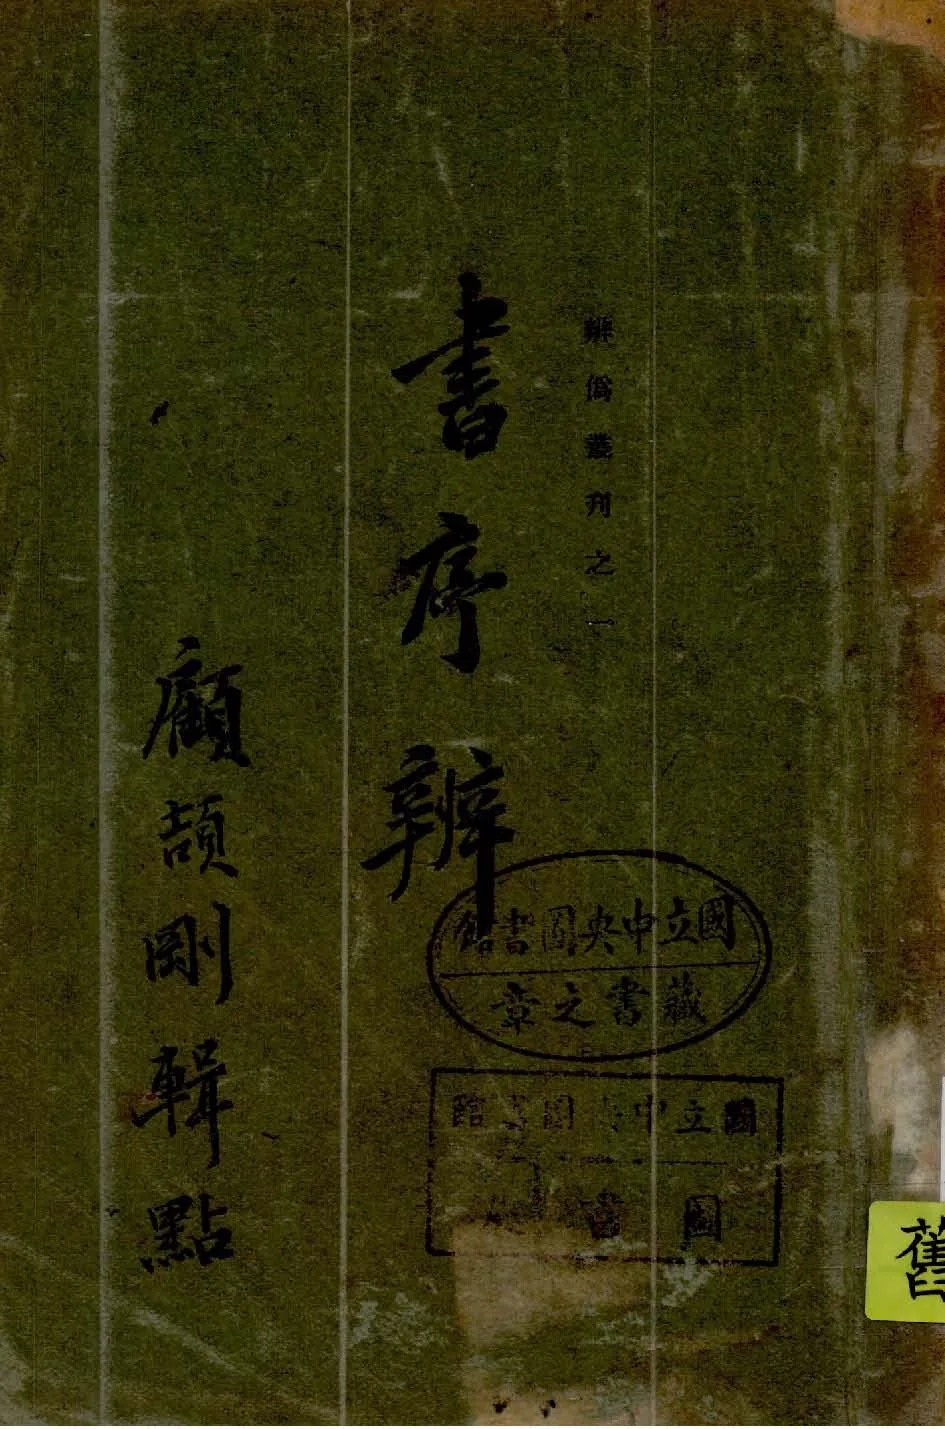 辨僞叢刊之一
書序辨
顧頡剛輯點
國立中央圖書館
藏書之章
國立中圖書館
圖書
舊